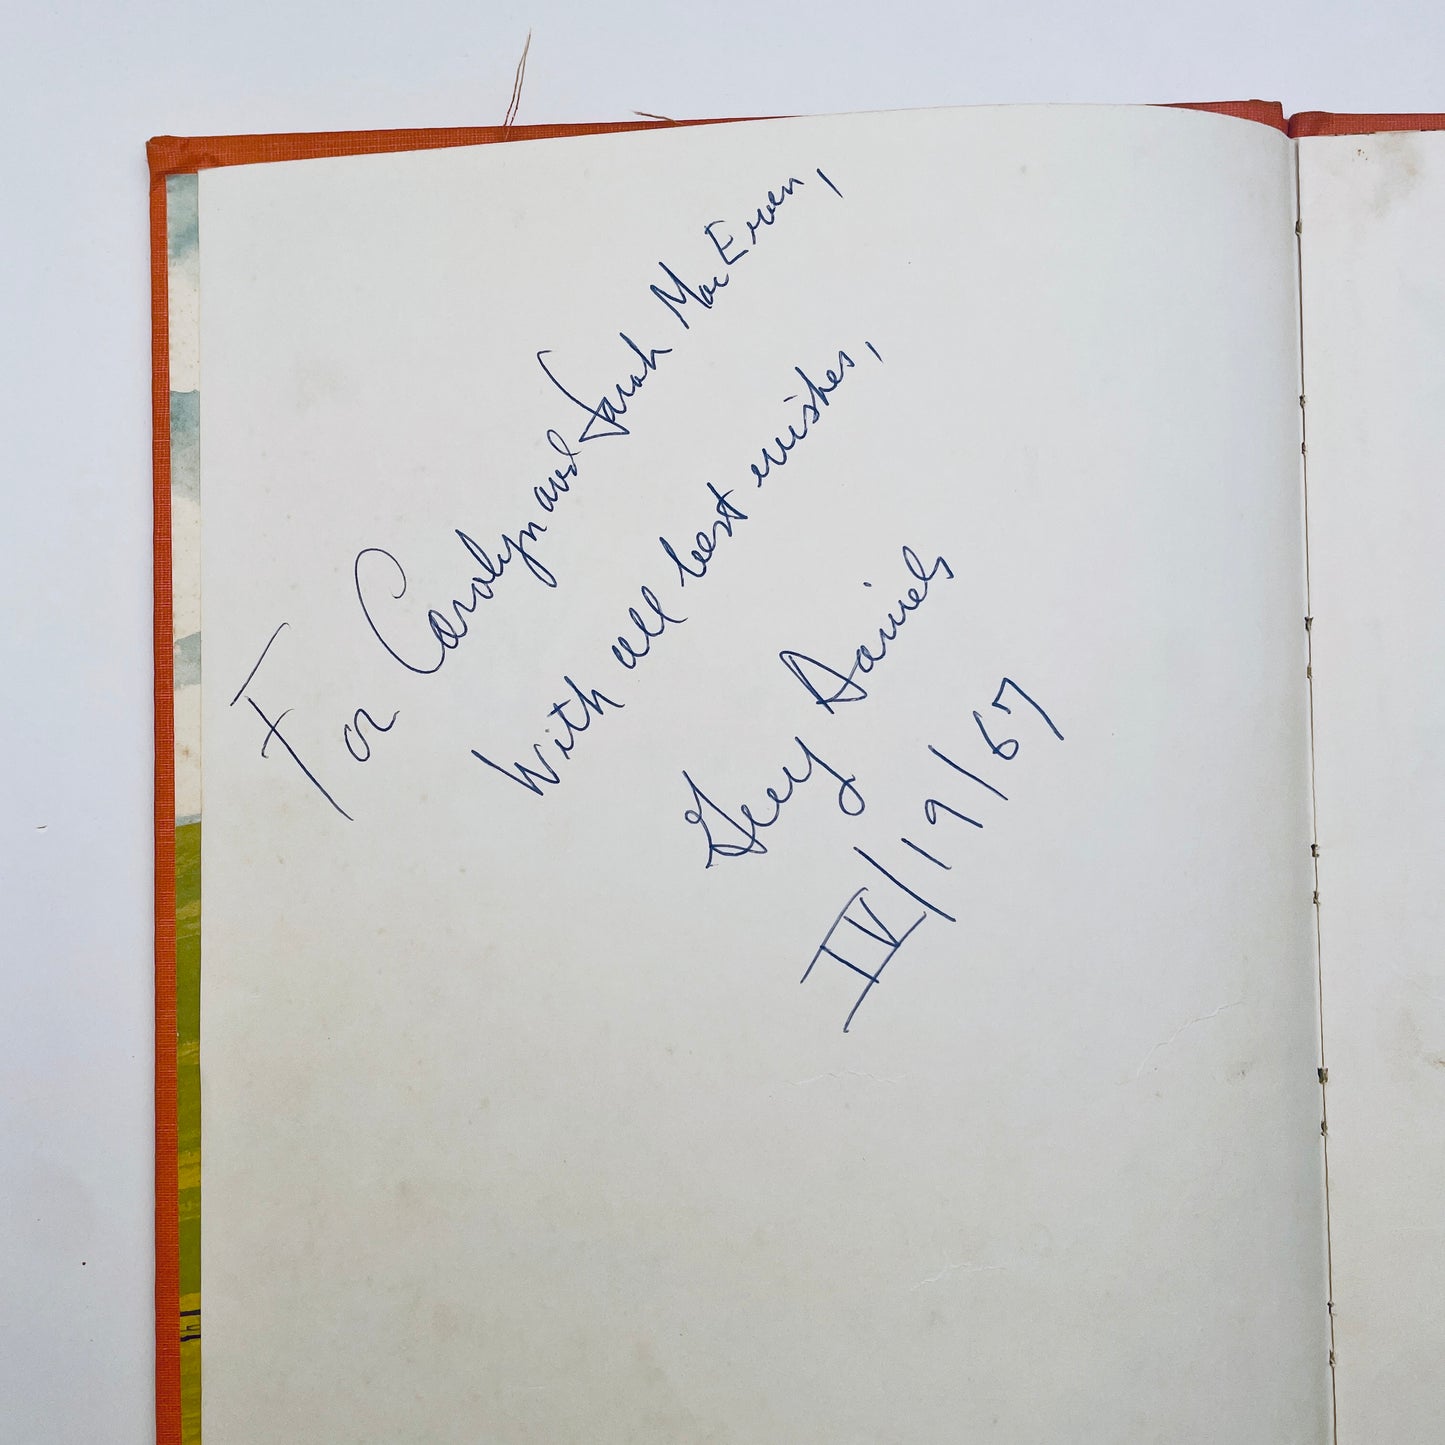 For Carolyn and Sarah MacEwen,
With all best wishes,
Guy Daniels
IV/19/67